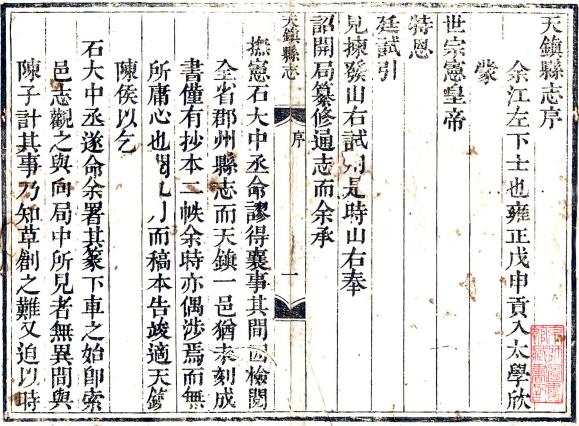 天鎮縣志序
余江左下士也雍正戊申貢入太學欣
蒙
世宗憲皇帝
特恩
廷試引
見揀發山右試用是時山右奉
詔開局纂修通志而余承
天鎮縣志 序 一
撫憲石大中丞命謬得襄事其間因檢閱
全省郡州縣志而天鎮一邑猶未刻成
書僅有抄本二帙余時亦偶涉焉而無
所庸心也而稿本告竣適天鎮
陳侯以乞
石大中丞遂命余署其篆下車之始卽索
邑志觀之與向局中所見者無異間與
陳子計其事乃知草創之難又迫以時